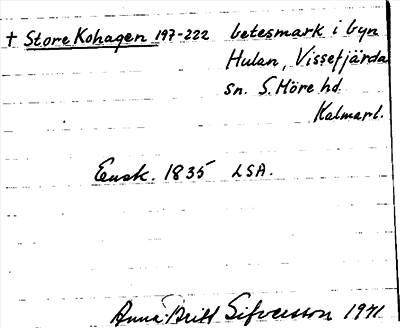 † Store Kohagen 197-222 betesmark i byn
Hulan, Vissefjärda
sn. S. Möre hd.
Kalmar l.
Ensk. 1835 LSA.
Anna-Britt Sifversson 1941